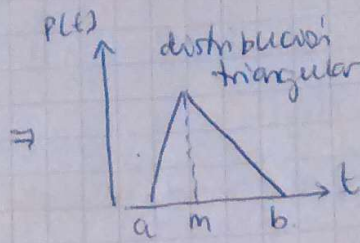 P(t)
distribució
triangular
⇒
t
a m b